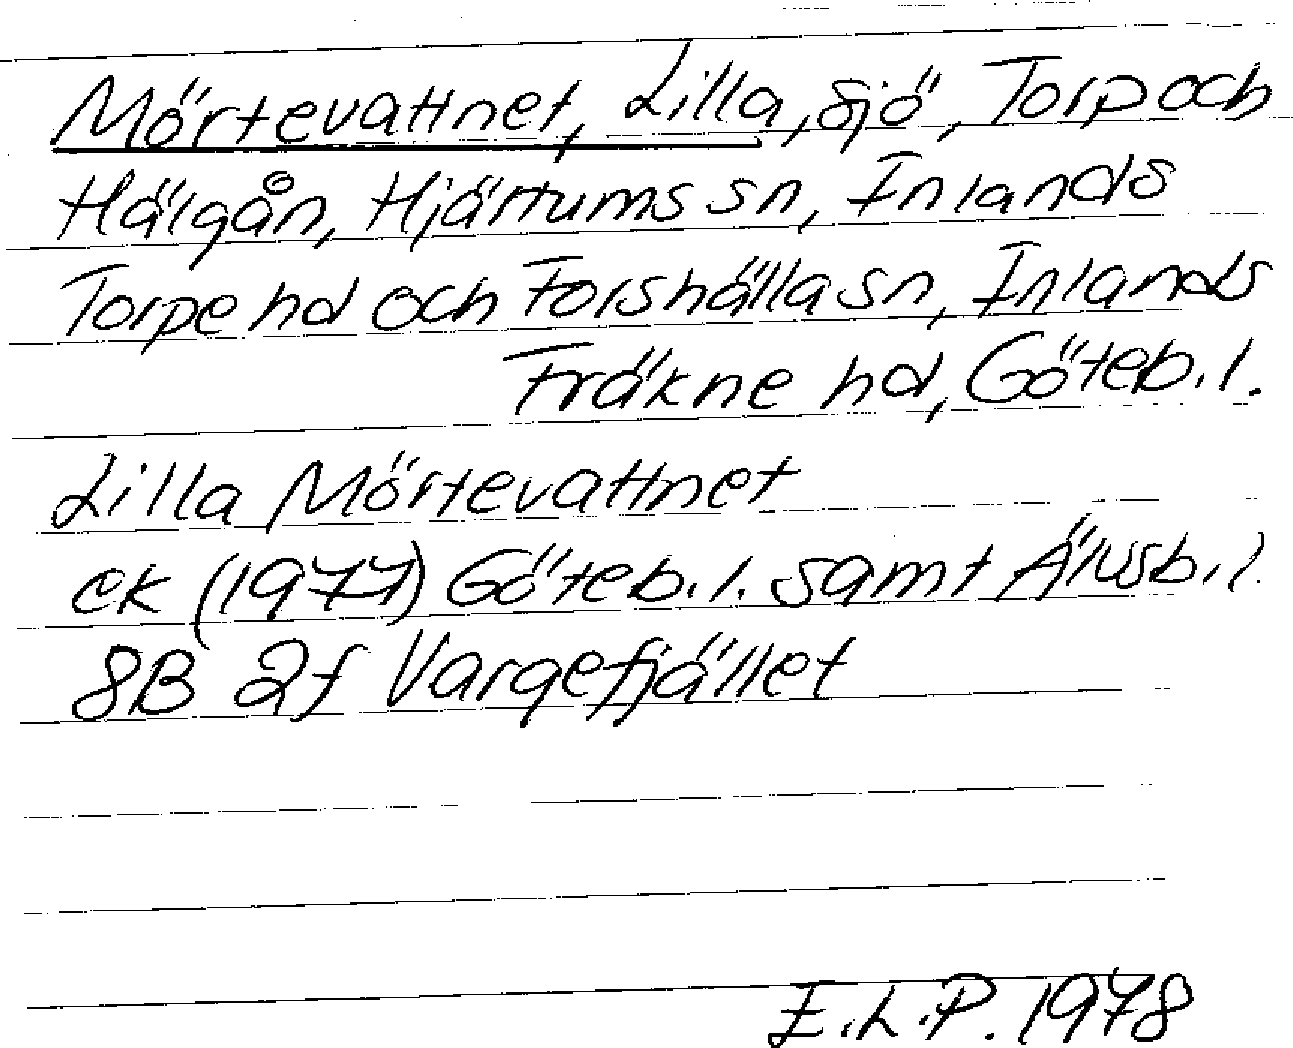 Mörtevattnet, Lilla, sjö, Torp och
Hälgån, Hjärtums sn, Inlands
Torpe hd och Forshälla sn, Inlands
Fräkne hd, Göteb. l.
Lilla Mörtevattnet
ek (1977) Göteb. l. samt Älvsb. l.
8B 2f Vargefjället
E.L.P. 1978